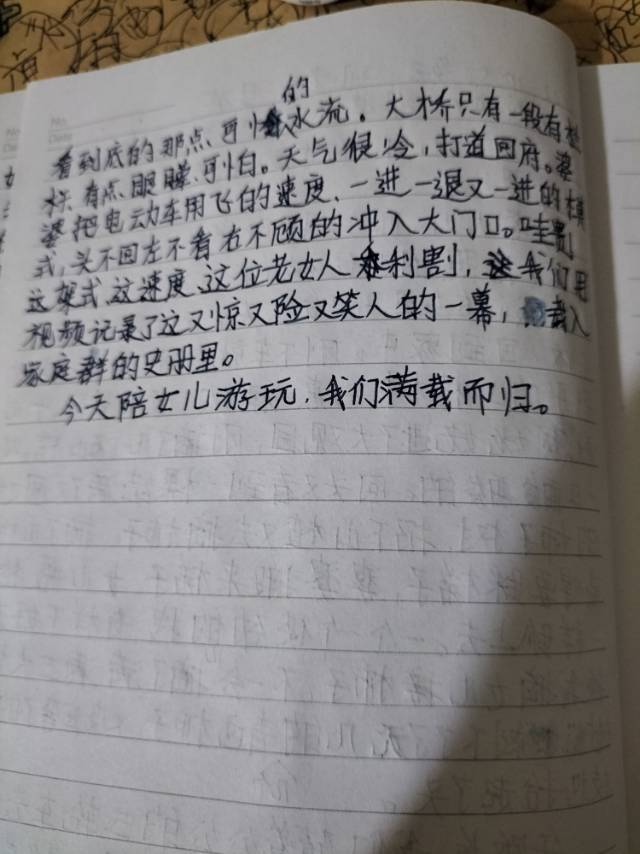 看到底的那点、可怕的水流。大桥只有一段有栏
标.有点眼矇、可怕。天气很冷,打道回府。婆
婆把电动车用飞的速度、一进一退又一进的模
式,头不回左不看右不顾的冲入大门口。哇!
这架式、这速度、这位老女人利割,我们用
视频记录了这又惊又险又笑人的一幕,载入
家庭群的史册里。
今天陪女儿游玩,我们满载而归。